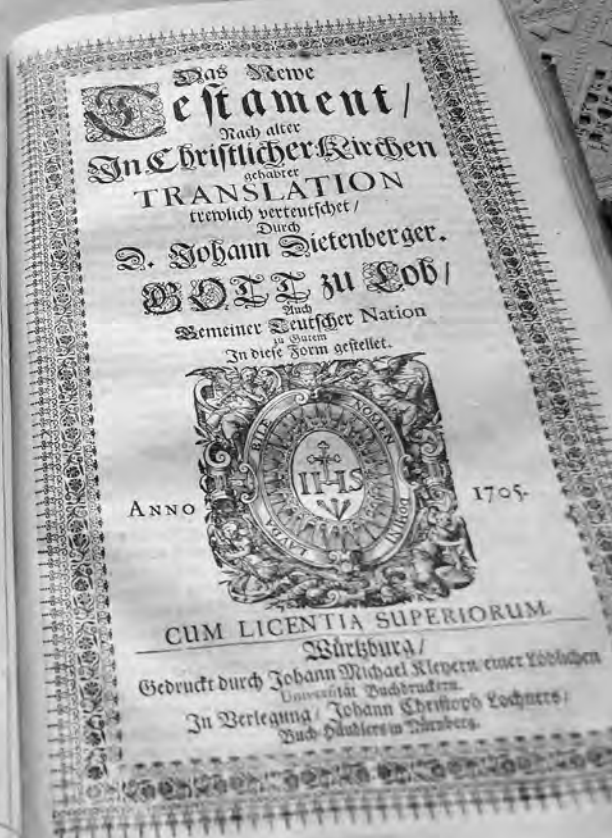 Das Newe
Testament/
Nach alter
In Christlicher Kirchen
gehabter
TRANSLATION
trewlich verteutschet/
Durch
D. Johann Dietenberger.
GOTT zu Lob/
Auch
Gemeiner Teutscher Nation
zu Gutem
In diese Form gestellet.
LAVDA BILE NOMEN DOMINI
IHS
ANNO 1705.
CUM LICENTIA SUPERIORUM.
Würtzburg/
Gedruckt durch Johann Michael Kleyern einer Löblichen
Universität Buchdruckern.
In Verlegung/ Johann Christoph Lochners/
Buch-Händlers in Nürnberg.